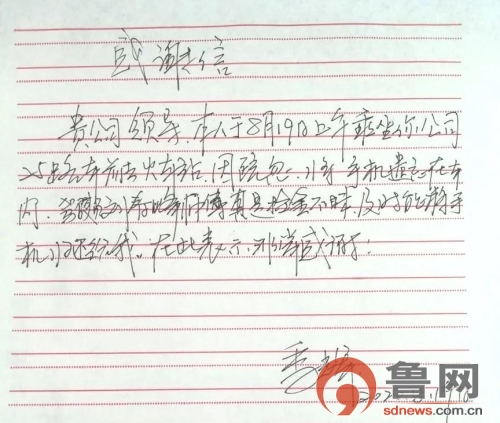 感谢信
贵公司领导、本人于8月19日上午乘坐你公司
25路公车前去火车站,因疏忽,将手机遗忘在车
内。驾驶员师傅真是拾金不昧,及时的将手
机归还给我。在此表示非常感谢!
季
鲁网
sdnews.com.cn